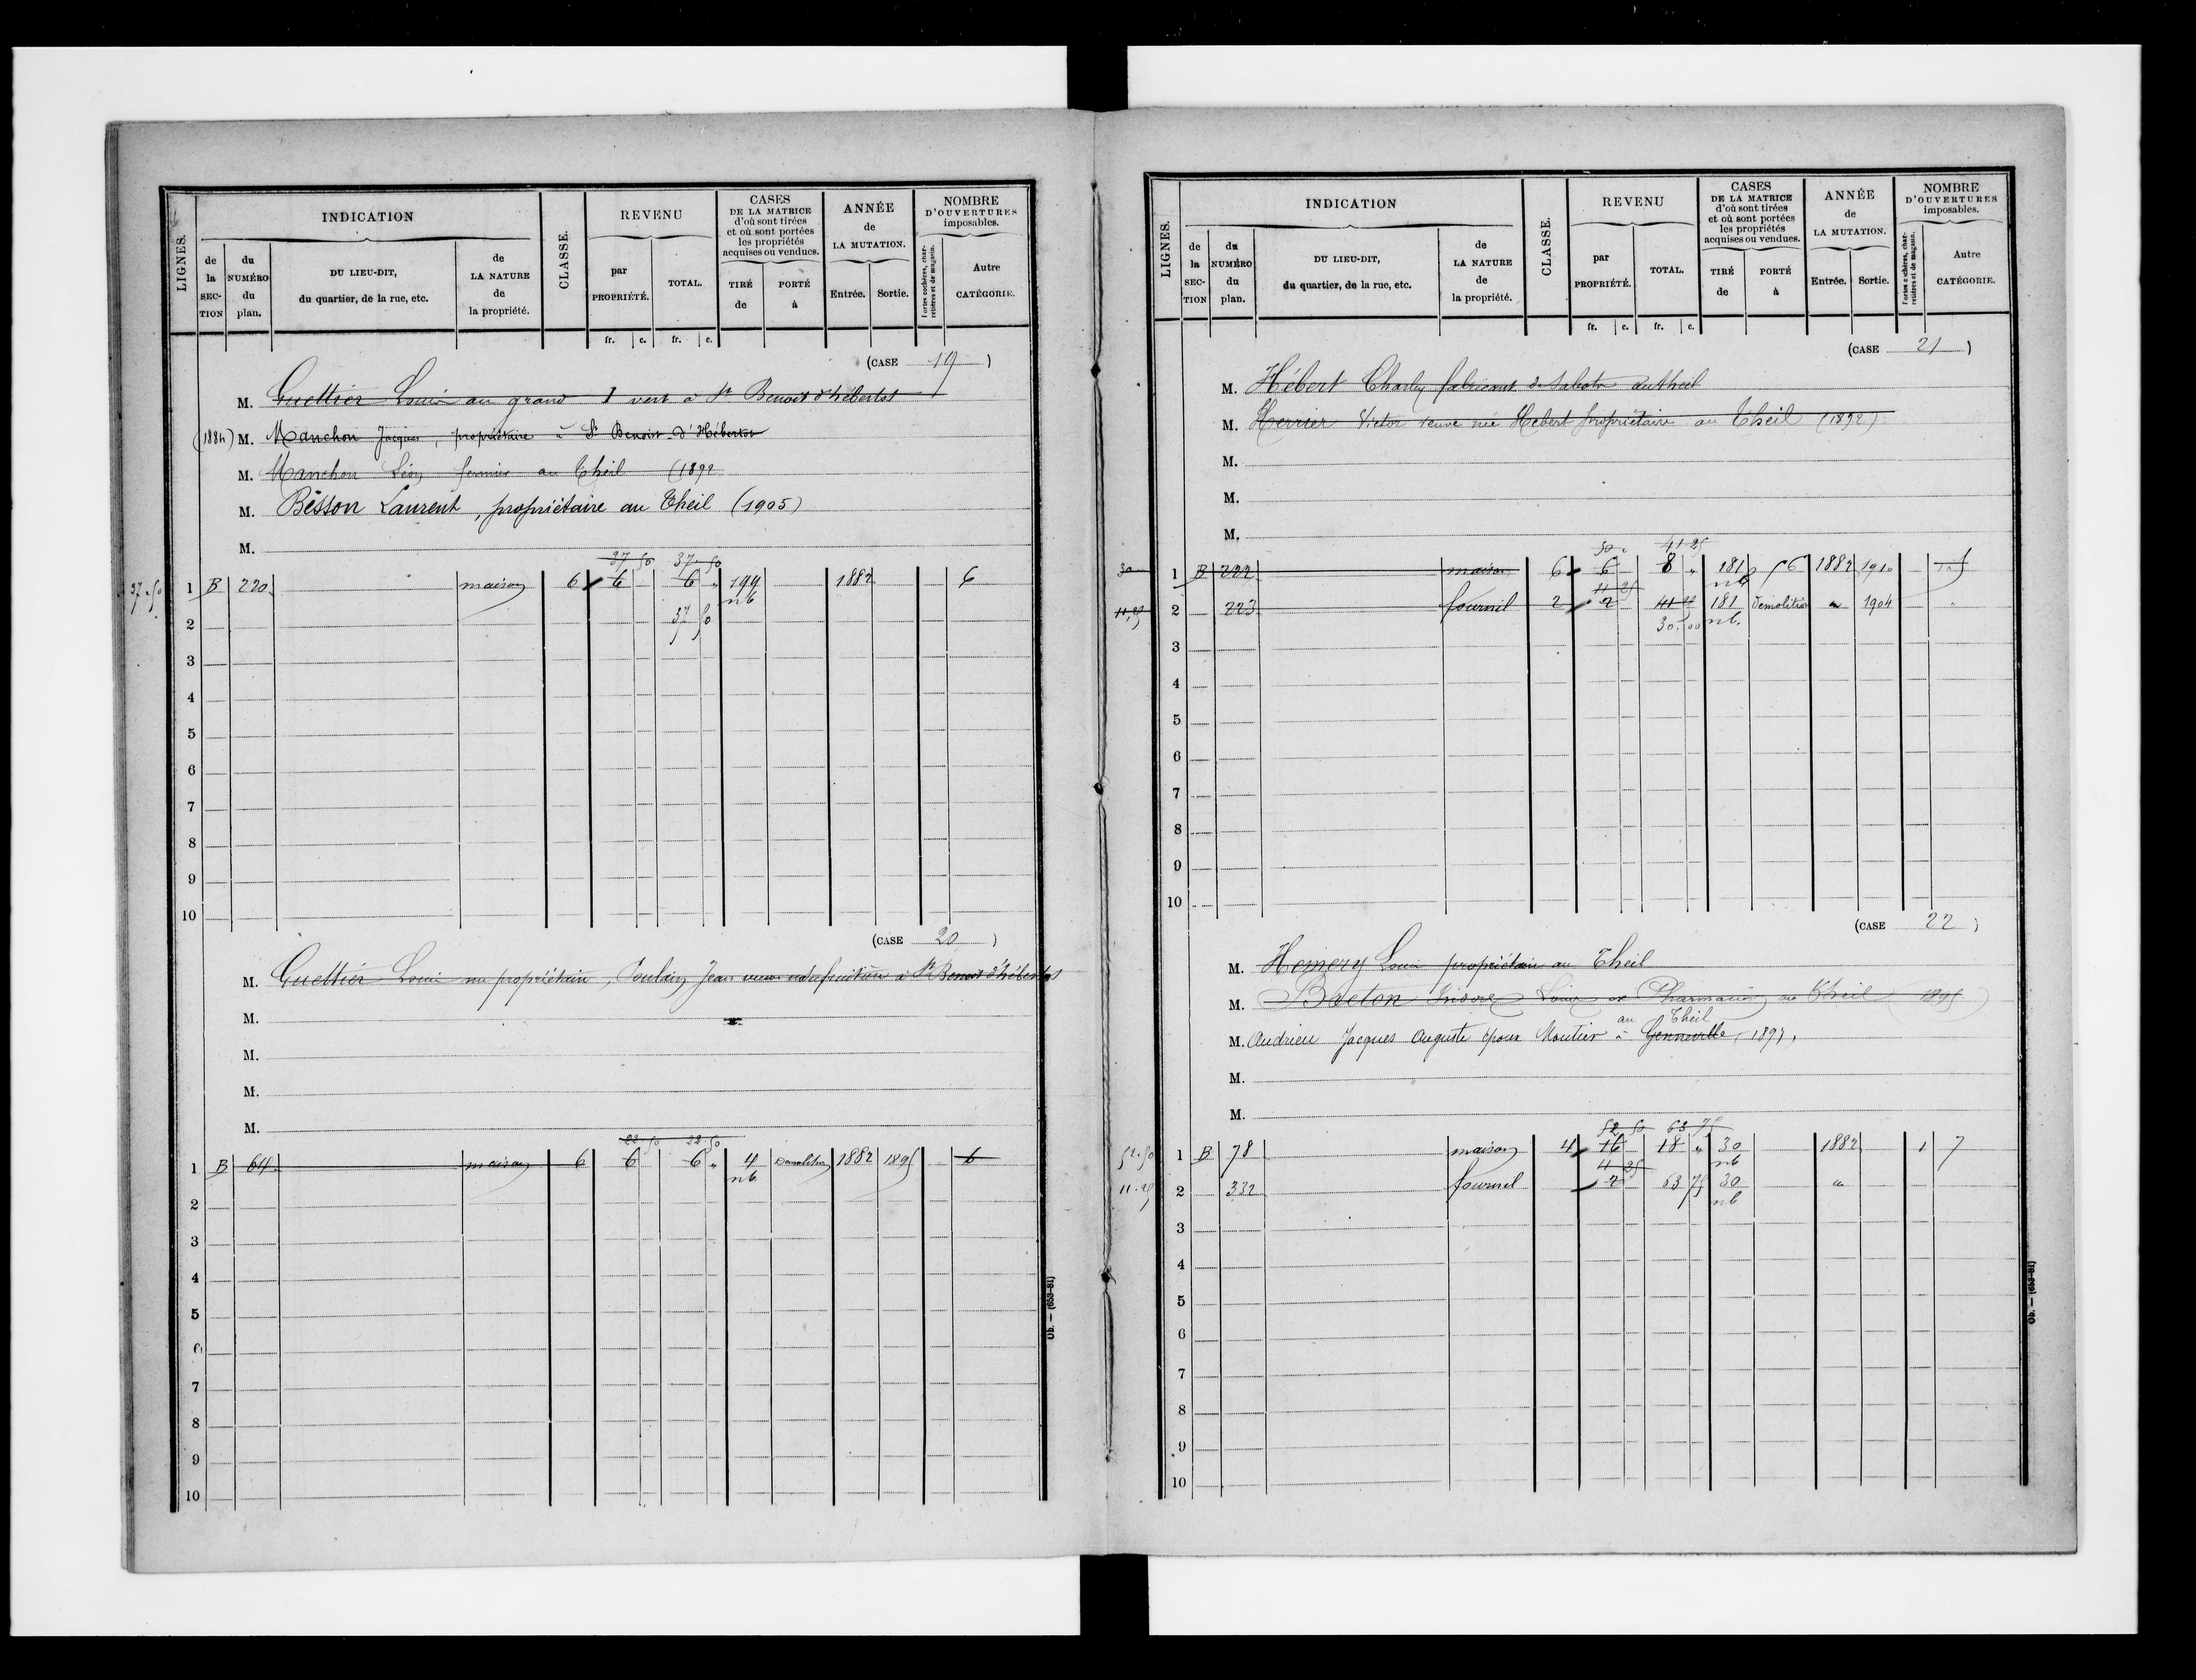 LIGNES. INDICATION CLASSE. REVENU CASES DE LA MATRICE d'où sont tirées et où sont portées les propriétés acquises ou vendues. ANNÉE de LA MUTATION. NOMBRE D'OUVERTURES imposables.
de la SECTION du NUMÉRO du plan. DU LIEU-DIT, du quartier, de la rue, etc. de LA NATURE de la propriété. par PROPRIÉTÉ. TOTAL. TIRÉ de PORTÉ à Entrée. Sortie. Portes cochères, charretières et de magasin. Autre CATÉGORIE.
fr. c. fr. c.
(CASE 19)
M. Guettier Louis au grand vert à St Benoit d'hébertot
(1884) M. Manchon Jacques, propriétaire à St Benoist-d'Hébertot
M. Manchon Léon fermier au Theil (1892
M. Besson Laurent, propriétaire au Theil (1905)
M.
37 50 37 50
37.50 1 B 220 maison 6 6 6 " 199 1882 6
nb
2 37 50
3
4
5
6
7
8
9
10
(CASE 20)
M. Guettier Louis nu propriétaire, Poulain Jean veuve usufruitière à St Benoit d'hébertot
M.
M.
M.
M.
22 50 22 50
1 B 64 maison 6 6 6 " 4 Démolition 1882 1895 6
nb
2
3
4
5
6
7
8
9
10
Ob. — (653-81)
LIGNES. INDICATION CLASSE. REVENU CASES DE LA MATRICE d'où sont tirées et où sont portées les propriétés acquises ou vendues. ANNÉE de LA MUTATION. NOMBRE D'OUVERTURES imposables.
de la SECTION du NUMÉRO du plan. DU LIEU-DIT, du quartier, de la rue, etc. de LA NATURE de la propriété. par PROPRIÉTÉ. TOTAL. TIRÉ de PORTÉ à Entrée. Sortie. Portes cochères, charretières et de magasin. Autre CATÉGORIE.
fr. c. fr. c.
(CASE 21)
M. Hébert Charles fabricant de sabots au theil
M. Herrier Victor veuve née Hebert propriétaire au Theil (1892)
M.
M.
M.
30 " 41 25
30 1 B 222 maison 6 6 8 " 181 56 1882 1910
nb
11 25
11,25 2 223 fournil 2 2 41 25 181 Démolition " 1904 "
30.00 nb.
3
4
5
6
7
8
9
10
(CASE 22)
M. Homery Louis propriétaire au Theil
M. Breton Louis ex Pharmacien au Theil 1895
au Theil
M. Audrieu Jacques Auguste époux Moutier à Genneville (1897)
M.
M.
52 50 63 75
52.50 1 B 78 maison 4 16 18 " 30 1882 1 7
nb
11 25
11.25 2 332 fournil 2 63 75 30 "
nb
3
4
5
6
7
8
9
10
Ob. — (653-81)